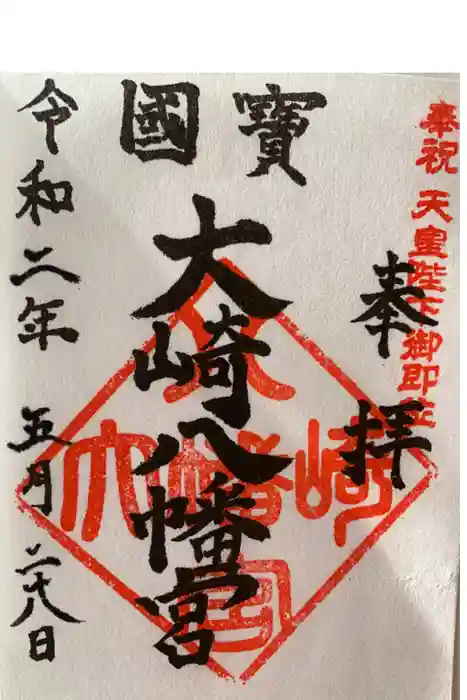 奉祝 天皇陛下御即位
奉拝
寶國
大崎八幡宮
令和二年 五月 二十八日
大崎八幡宮